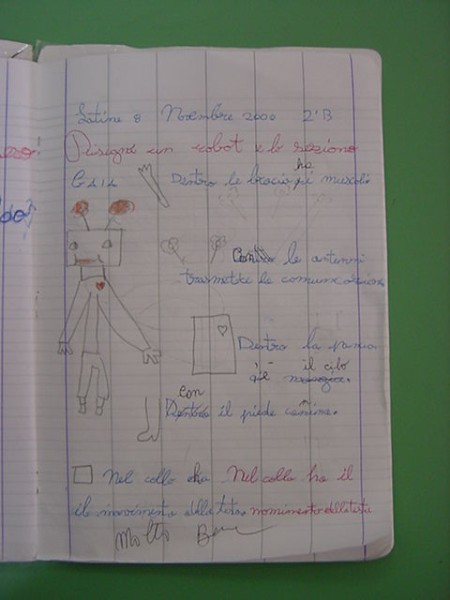 Latina 8 Novembre 2000 2ªB
Disegno un robot e lo seziono
ha
Dentro le braccia i muscoli
Con le antenne
trasmette le comunicazioni
Dentro la pancia
il cibo
c'è mangia.
con
Dentro il piede cammina.
Nel collo ha Nel collo ha il
il movimento della testa movimento della testa
Molto Bene